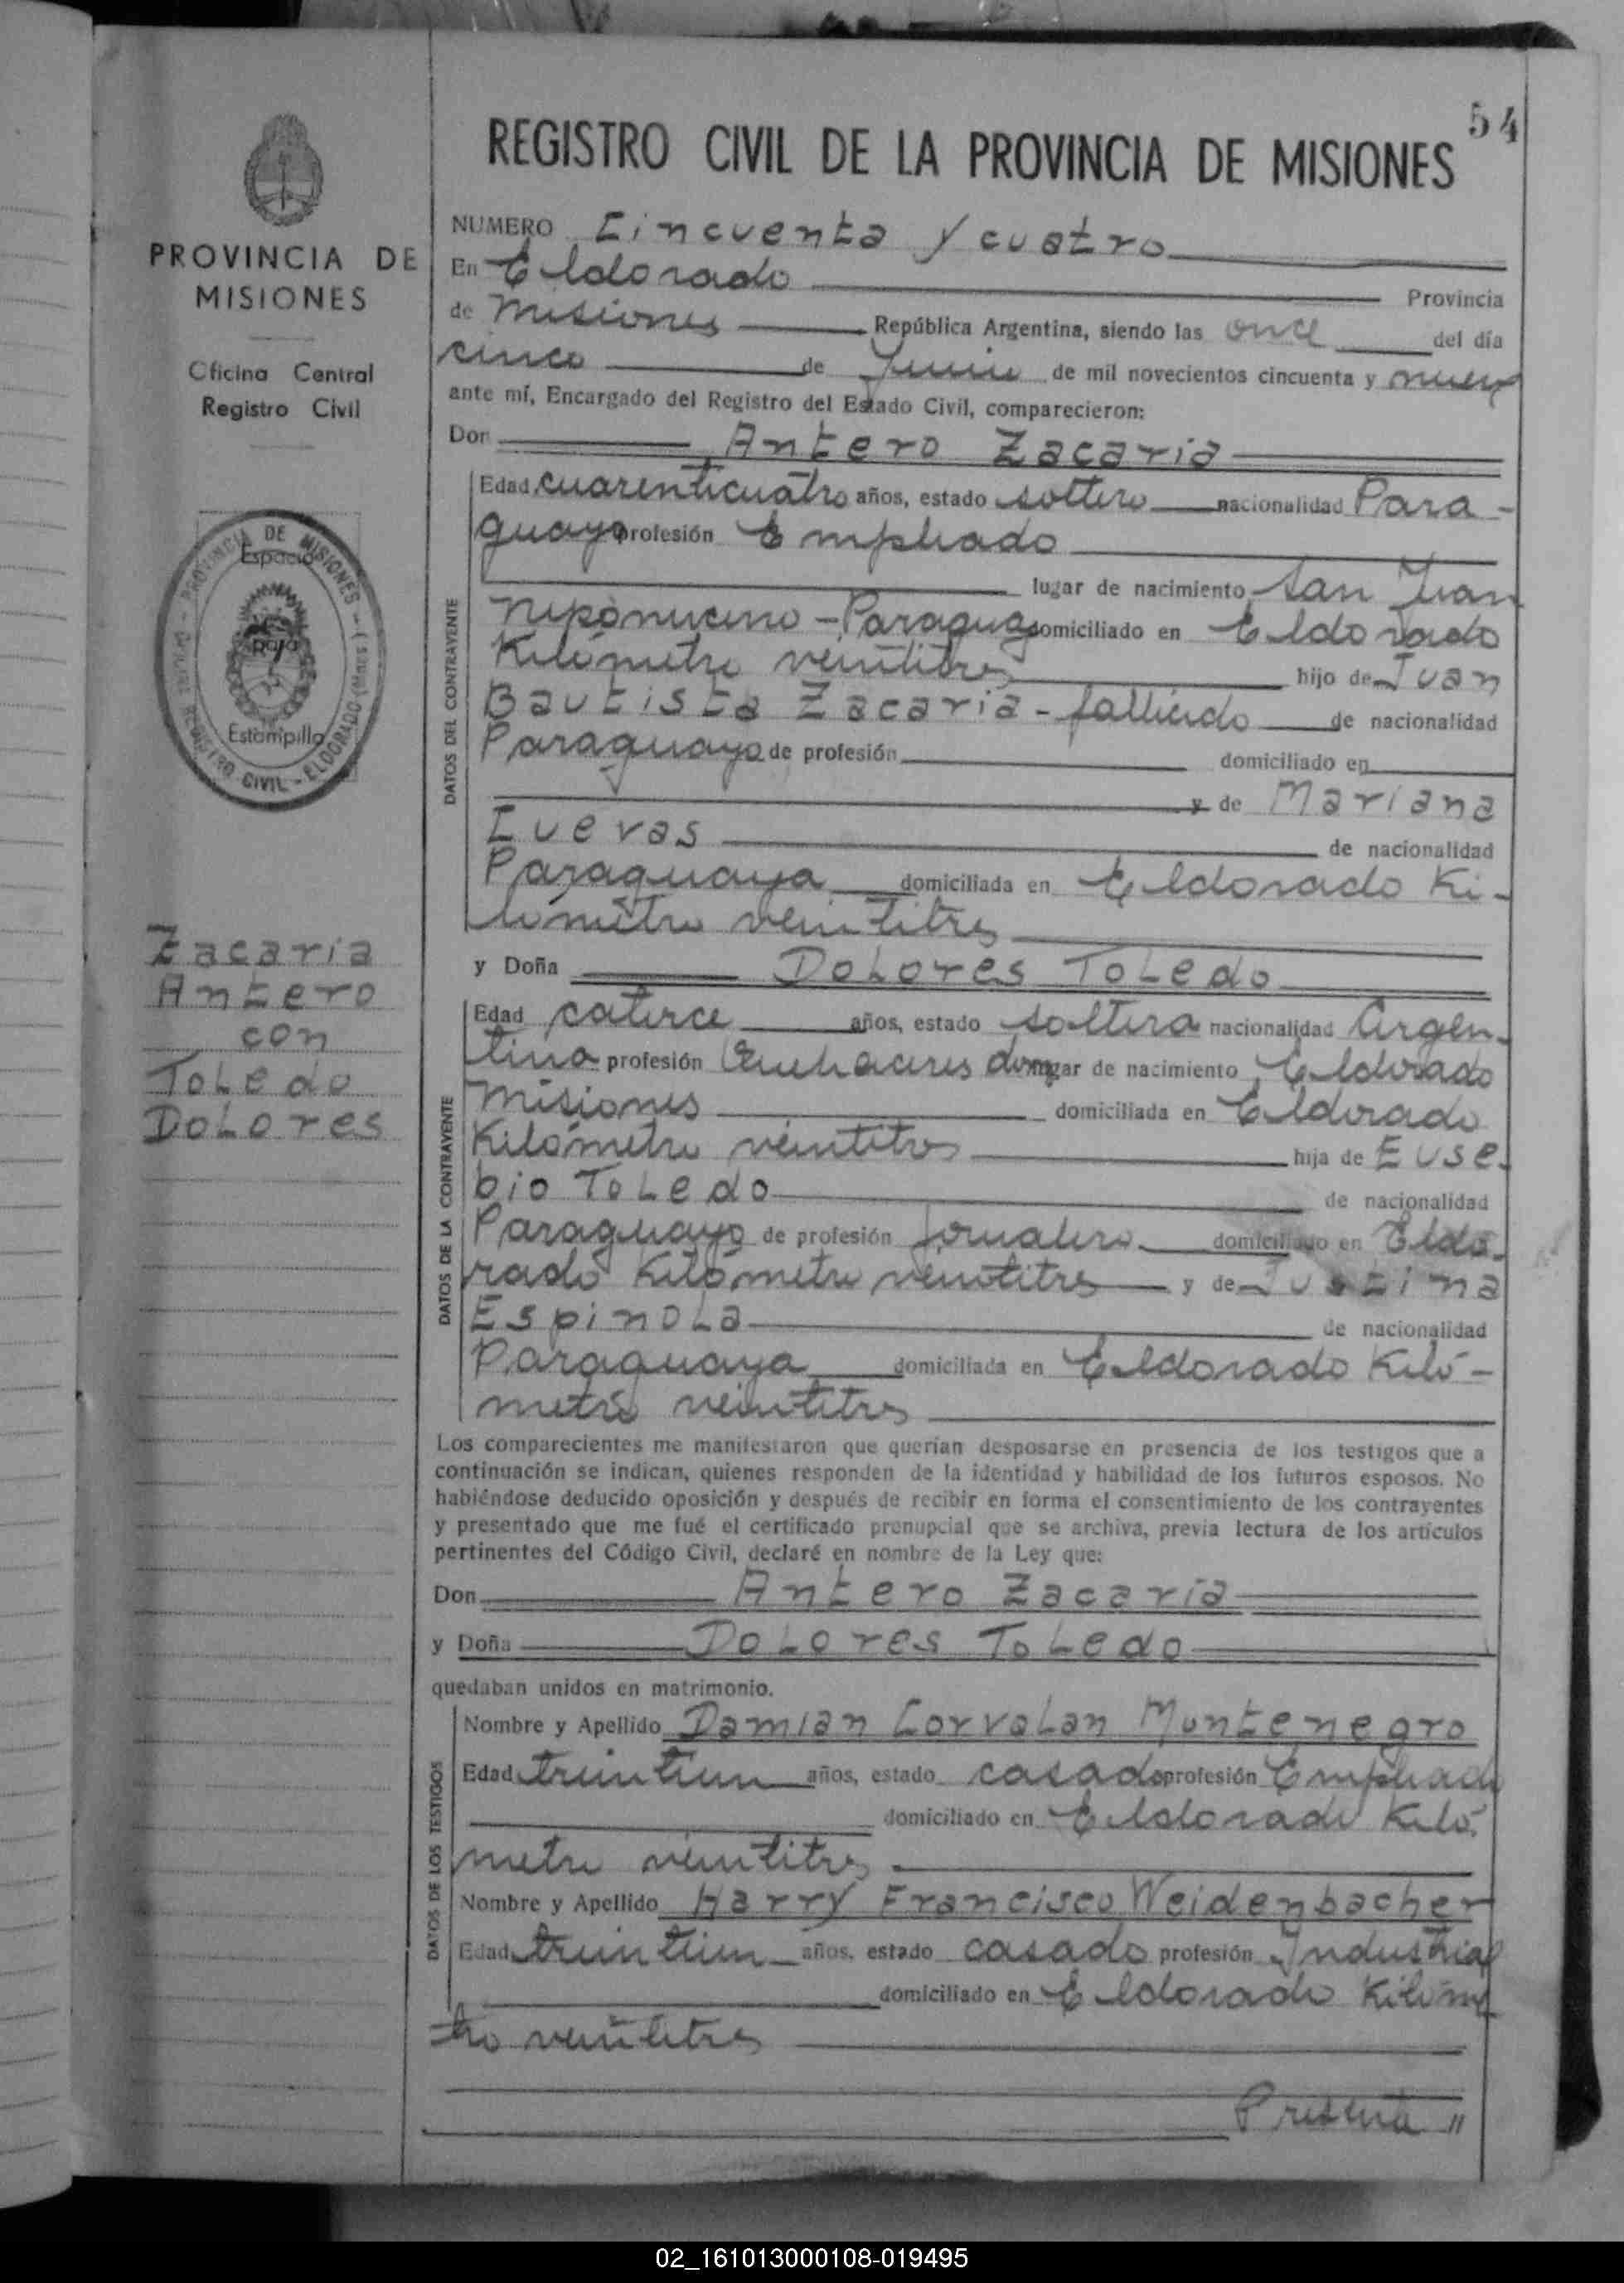 54
REGISTRO CIVIL DE LA PROVINCIA DE MISIONES
PROVINCIA DE
MISIONES
Oficina Central
Registro Civil
PROVINCIA DE MISIONES
Espacio
para
Estampilla
REGISTRO CIVIL - ELDORADO (Mnes.)
Zacaria
Antero
con
Toledo
Dolores
NUMERO Cincuenta y cuatro
En Eldorado Provincia
de Misiones República Argentina, siendo las once del día
cinco de Junio de mil novecientos cincuenta y nueve
ante mí, Encargado del Registro del Estado Civil, comparecieron:
Don Antero Zacaria
DATOS DEL CONTRAYENTE
Edad cuarenticuatro años, estado soltero nacionalidad Para-
guayo profesión Empleado
lugar de nacimiento San Juan
Nepomuceno - Paraguay domiciliado en Eldorado
Kilómetro veintitres hijo de Juan
Bautista Zacaria - fallecido de nacionalidad
Paraguayo de profesión domiciliado en
y de Mariana
Cuevas de nacionalidad
Paraguaya domiciliada en Eldorado Ki-
lómetro veintitres
y Doña Dolores Toledo
DATOS DE LA CONTRAYENTE
Edad catorce años, estado soltera nacionalidad Argen-
tina profesión Quehaceres dom lugar de nacimiento Eldorado
Misiones domiciliada en Eldorado
Kilómetro veintitres hija de Euse-
bio Toledo de nacionalidad
Paraguayo de profesión Jornalero domiciliado en Eldo-
rado Kilómetro veintitres y de Justina
Espinola de nacionalidad
Paraguaya domiciliada en Eldorado Kiló-
metro veintitres
Los comparecientes me manifestaron que querían desposarse en presencia de los testigos que a
continuación se indican, quienes responden de la identidad y habilidad de los futuros esposos. No
habiéndose deducido oposición y después de recibir en forma el consentimiento de los contrayentes
y presentado que me fué el certificado prenupcial que se archiva, previa lectura de los artículos
pertinentes del Código Civil, declaré en nombre de la Ley que:
Don Antero Zacaria
y Doña Dolores Toledo
quedaban unidos en matrimonio.
DATOS DE LOS TESTIGOS
Nombre y Apellido Damian Corvalan Montenegro
Edad treintiun años, estado casado profesión Empleado
domiciliado en Eldorado Kiló-
metro veintitres
Nombre y Apellido Harry Francisco Weidenbacher
Edad treintiun años, estado casado profesión Industrial
domiciliado en Eldorado Kilóme
tro veintitres
Presente //
02_161013000108-019495